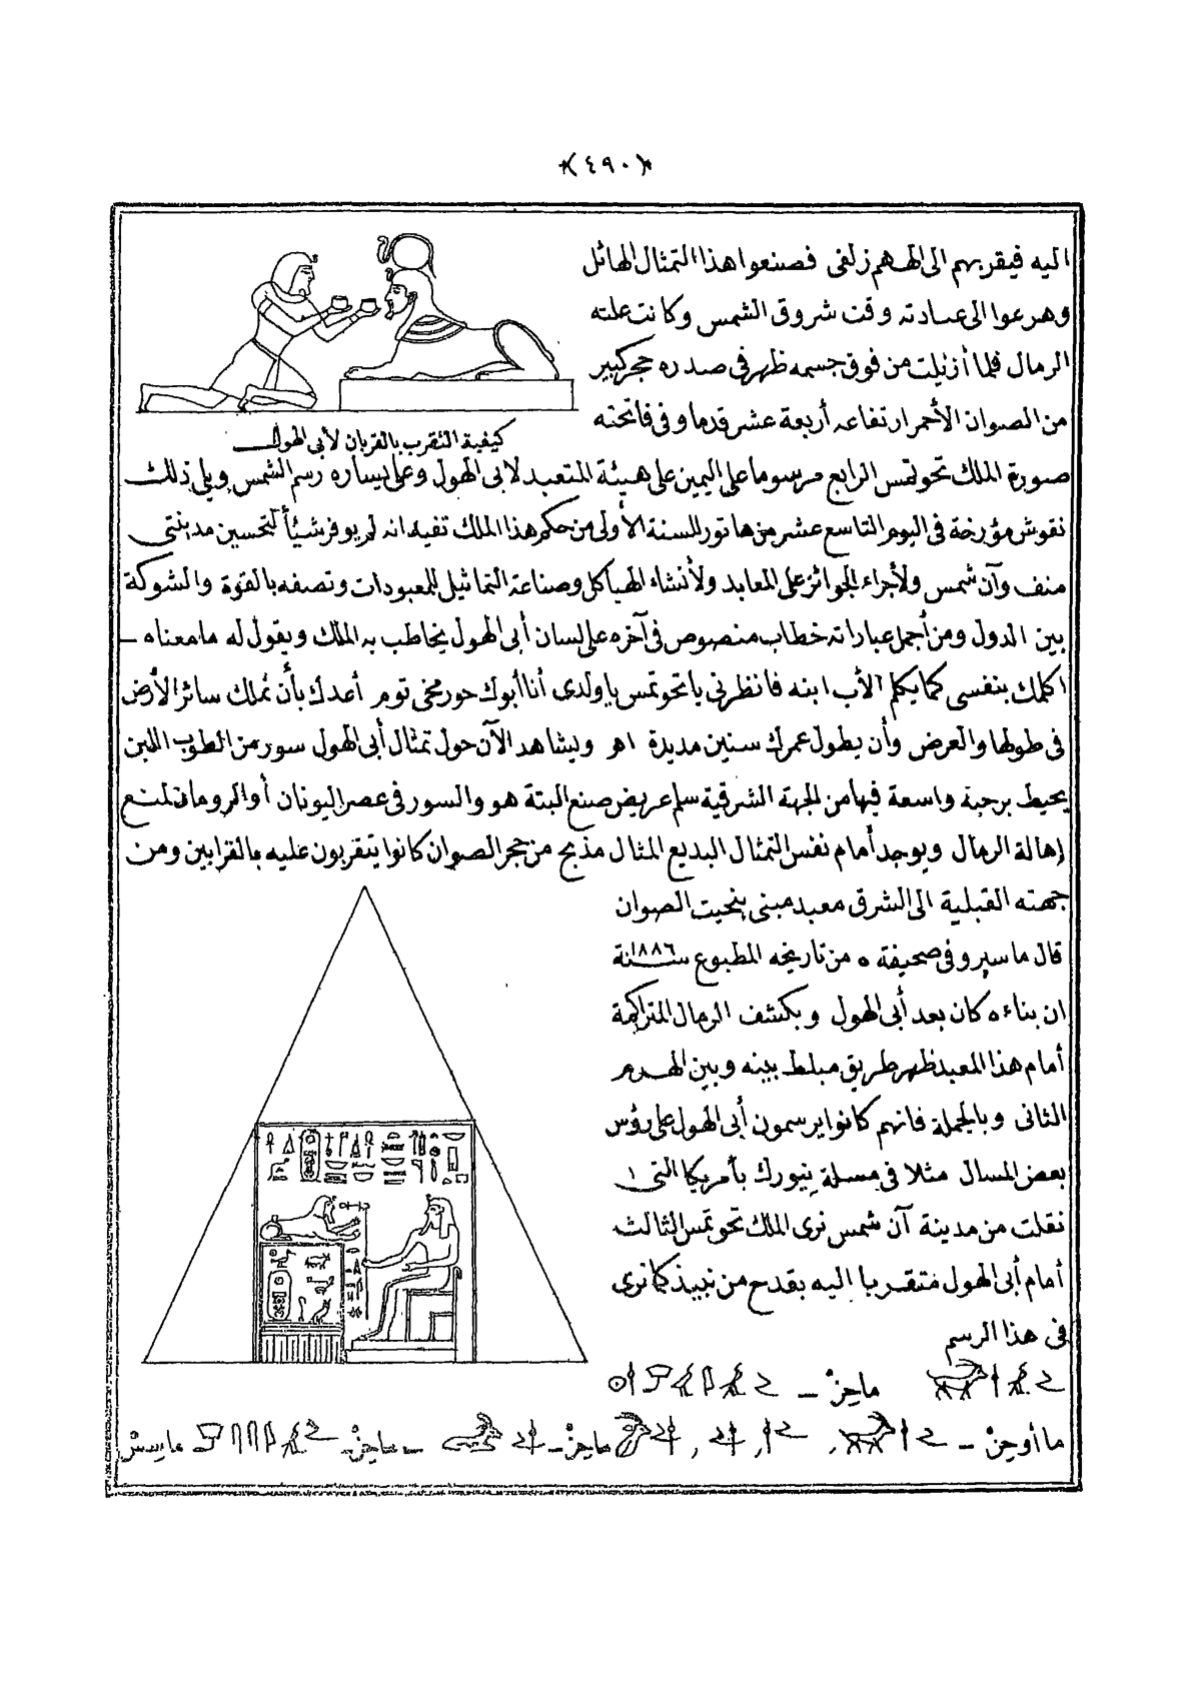 ﴿٤٩٠﴾
اليه فيقربهم الى الههم زلفى فصنعوا هذا التمثال الهائل
وهرعوا الى عبادته وقت شروق الشمس وكانت علته
الرمال فلما أزيلت من فوق جسمه ظهر فى صدره حجر كبير
من الصوان الأحمر ارتفاعه أربعة عشر قدما وفى فاتحته
كيفية التقرب بالقربان لأبى الهول
صورة الملك تحوتمس الرابع مرسوما على اليمين على هيئة المتعبد لابى الهول وعلى يساره رسم الشمس ويلى ذلك
نقوش مؤرخة فى اليوم التاسع عشر من هاتور للسنة الأولى من حكم هذا الملك تفيد انه لم يوفر شيئا لتحسين مدينتى
منف وآن شمس ولأجراء الجوائز على المعابد ولأنشاء الهياكل وصناعة التماثيل للمعبودات وتصفه بالقوة والشوكة
بين الدول ومن أجمل عباراته خطاب منصوص فى آخره على لسان أبى الهول يخاطب به الملك ويقول له ما معناه —
اكلمك بنفسى كما يكلم الأب ابنه فانظرنى يا تحوتمس يا ولدى أنا أبوك حورمخى توم أعدك بأن تملك سائر الأرض
فى طولها والعرض وأن يطول عمرك سنين مديدة اهر ويشاهد الآن حول تمثال أبى الهول سور من الطوب اللبن
يحيط برحبة واسعة فيها من الجهة الشرقية سلم عريض صنع البتة هو والسور فى عصر اليونان أو الرومان لمنع
إهالة الرمال ويوجد أمام نفس التمثال البديع المثال مذبح من حجر الصوان كانوا يتقربون عليه بالقرابين ومن
جهته القبلية الى الشرق معبد مبنى بنحيت الصوان
قال ماسپرو فى صحيفة ٥ من تاريخه المطبوع سنة ١٨٨٦
ان بناءه كان بعد أبى الهول وبكشف الرمال المتراكمة
أمام هذا المعبد ظهر طريق مبلط بينه وبين الهرم
الثانى وبالجملة فانهم كانوا يرسمون أبى الهول على رؤس
بعض المسال مثلا فى مسلة نيورك بأمريكا التى
نقلت من مدينة آن شمس نرى الملك تحوتمس الثالث
أمام أبى الهول متقربا اليه بقدح من نبيذ كما نرى
فى هذا الرسم
ماحِزْ —
ما أوحِزْ — ماحِزْ — ماحِزْ —